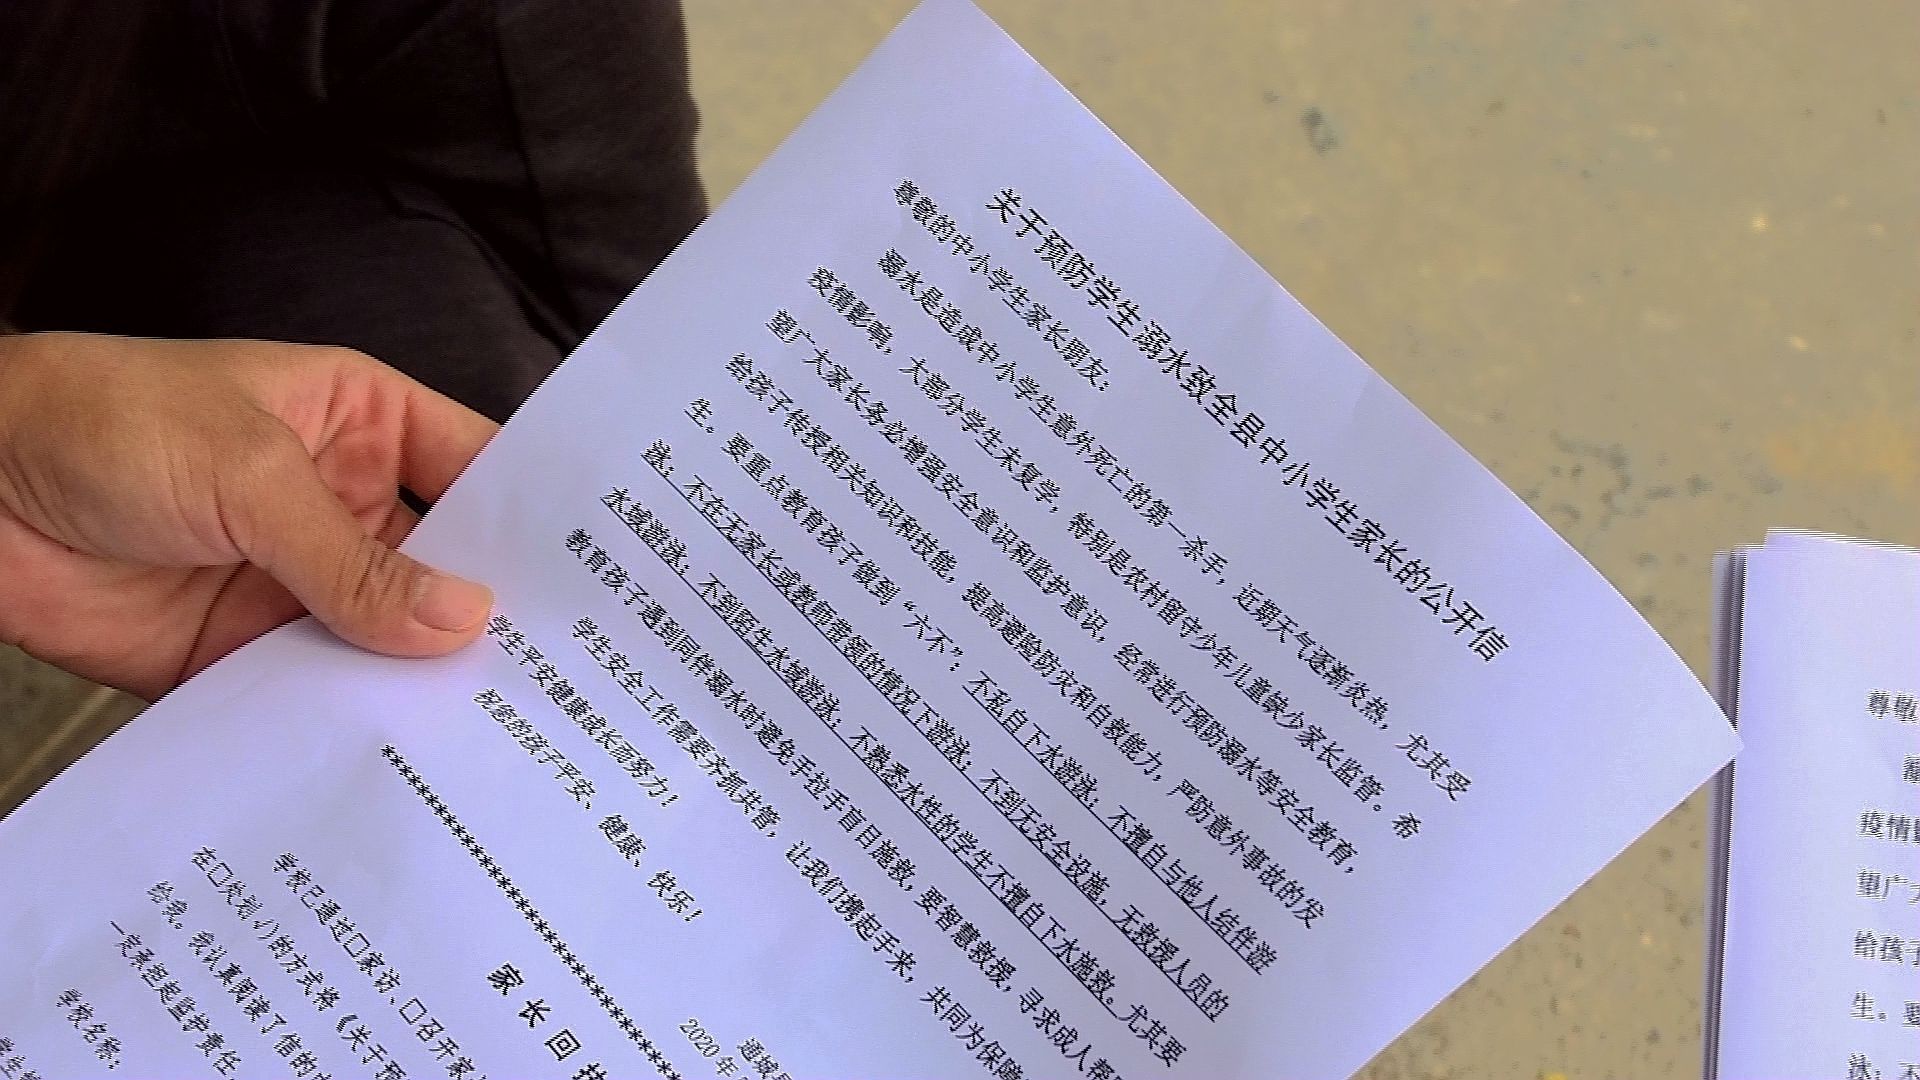 关于预防学生溺水致全县中小学生家长的公开信
尊敬的中小学生家长朋友：
溺水是造成中小学生意外死亡的第一杀手，近期天气逐渐炎热，尤其受
疫情影响，大部分学生未复学，特别是农村留守少年儿童缺少家长监管。希
望广大家长务必增强安全意识和监护意识，经常进行预防溺水等安全教育，
给孩子传授相关知识和技能，提高避险防灾和自救能力，严防意外事故的发
生。要重点教育孩子做到“六不”：不私自下水游泳；不擅自与他人结伴游
泳；不在无家长或教师带领的情况下游泳；不到无安全设施，无救援人员的
水域游泳；不到陌生水域游泳；不熟悉水性的学生不擅自下水施救。尤其要
教育孩子遇到同伴溺水时避免手拉手盲目施救，要智慧救援，寻求成人帮
学生安全工作需要齐抓共管，让我们携起手来，共同为保障
学生平安健康成长而努力！
祝您的孩子平安、健康、快乐！
通城县
2020年
********************************
家长回执
学校已通过□家访、□召开家
在□处划√)的方式将《关于预
给我。我认真阅读了信的内
一定承担起监护责任，
学校名称：
学生
尊敬
溺
疫情
望广大
给孩子
生。要
泳；不